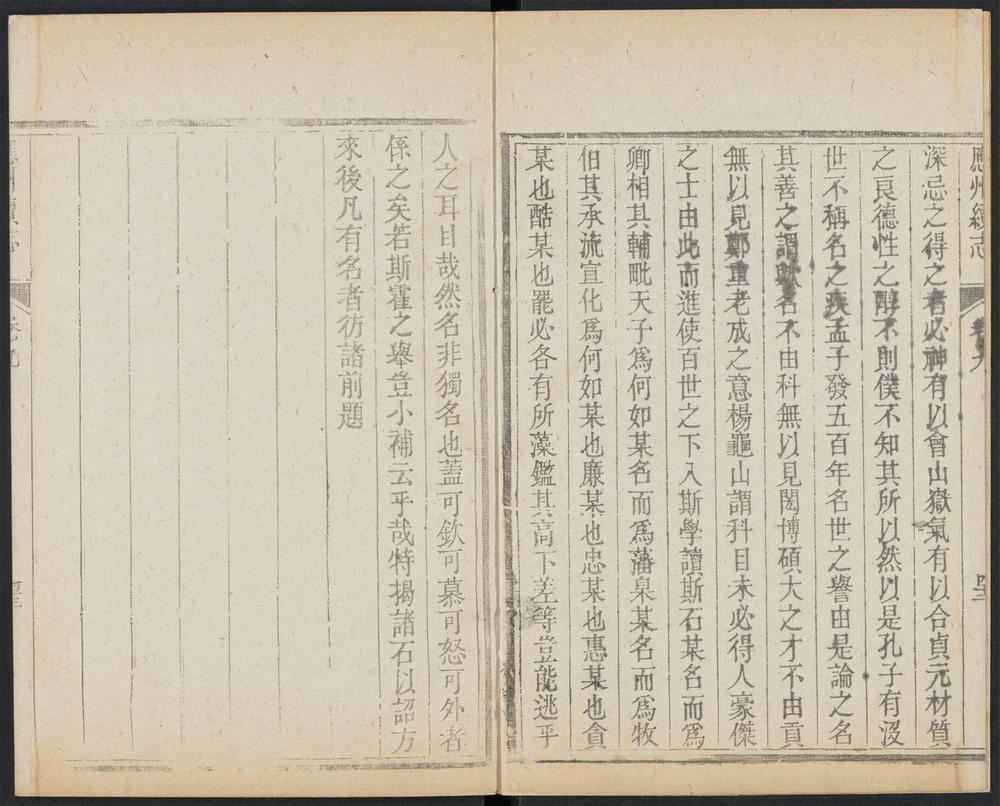 應州續志
卷九
深忌之得之者必神有以會山嶽氣有以合貞元材質
之良德性之醇不則僕不知其所以然以是孔子有沒
世不稱名之疾孟子發五百年名世之譽由是論之名
其善之謂歟名不由科無以見閎博碩大之才不由貢
無以見鄭重老成之意楊龜山謂科目未必得人豪傑
之士由此而進使百世之下入斯學讀斯石某名而爲
卿相其輔毗天子爲何如某名而爲藩臬某名而爲牧
伯其承流宣化爲何如某也廉某也忠某也惠某也貪
某也酷某也罷必各有所藻鑑其高下差等豈能逃乎
人之耳目哉然名非獨名也蓋可欽可慕可怒可外者
係之矣若斯霍之舉豈小補云乎哉特揭諸石以詔方
來後凡有名者彷諸前題